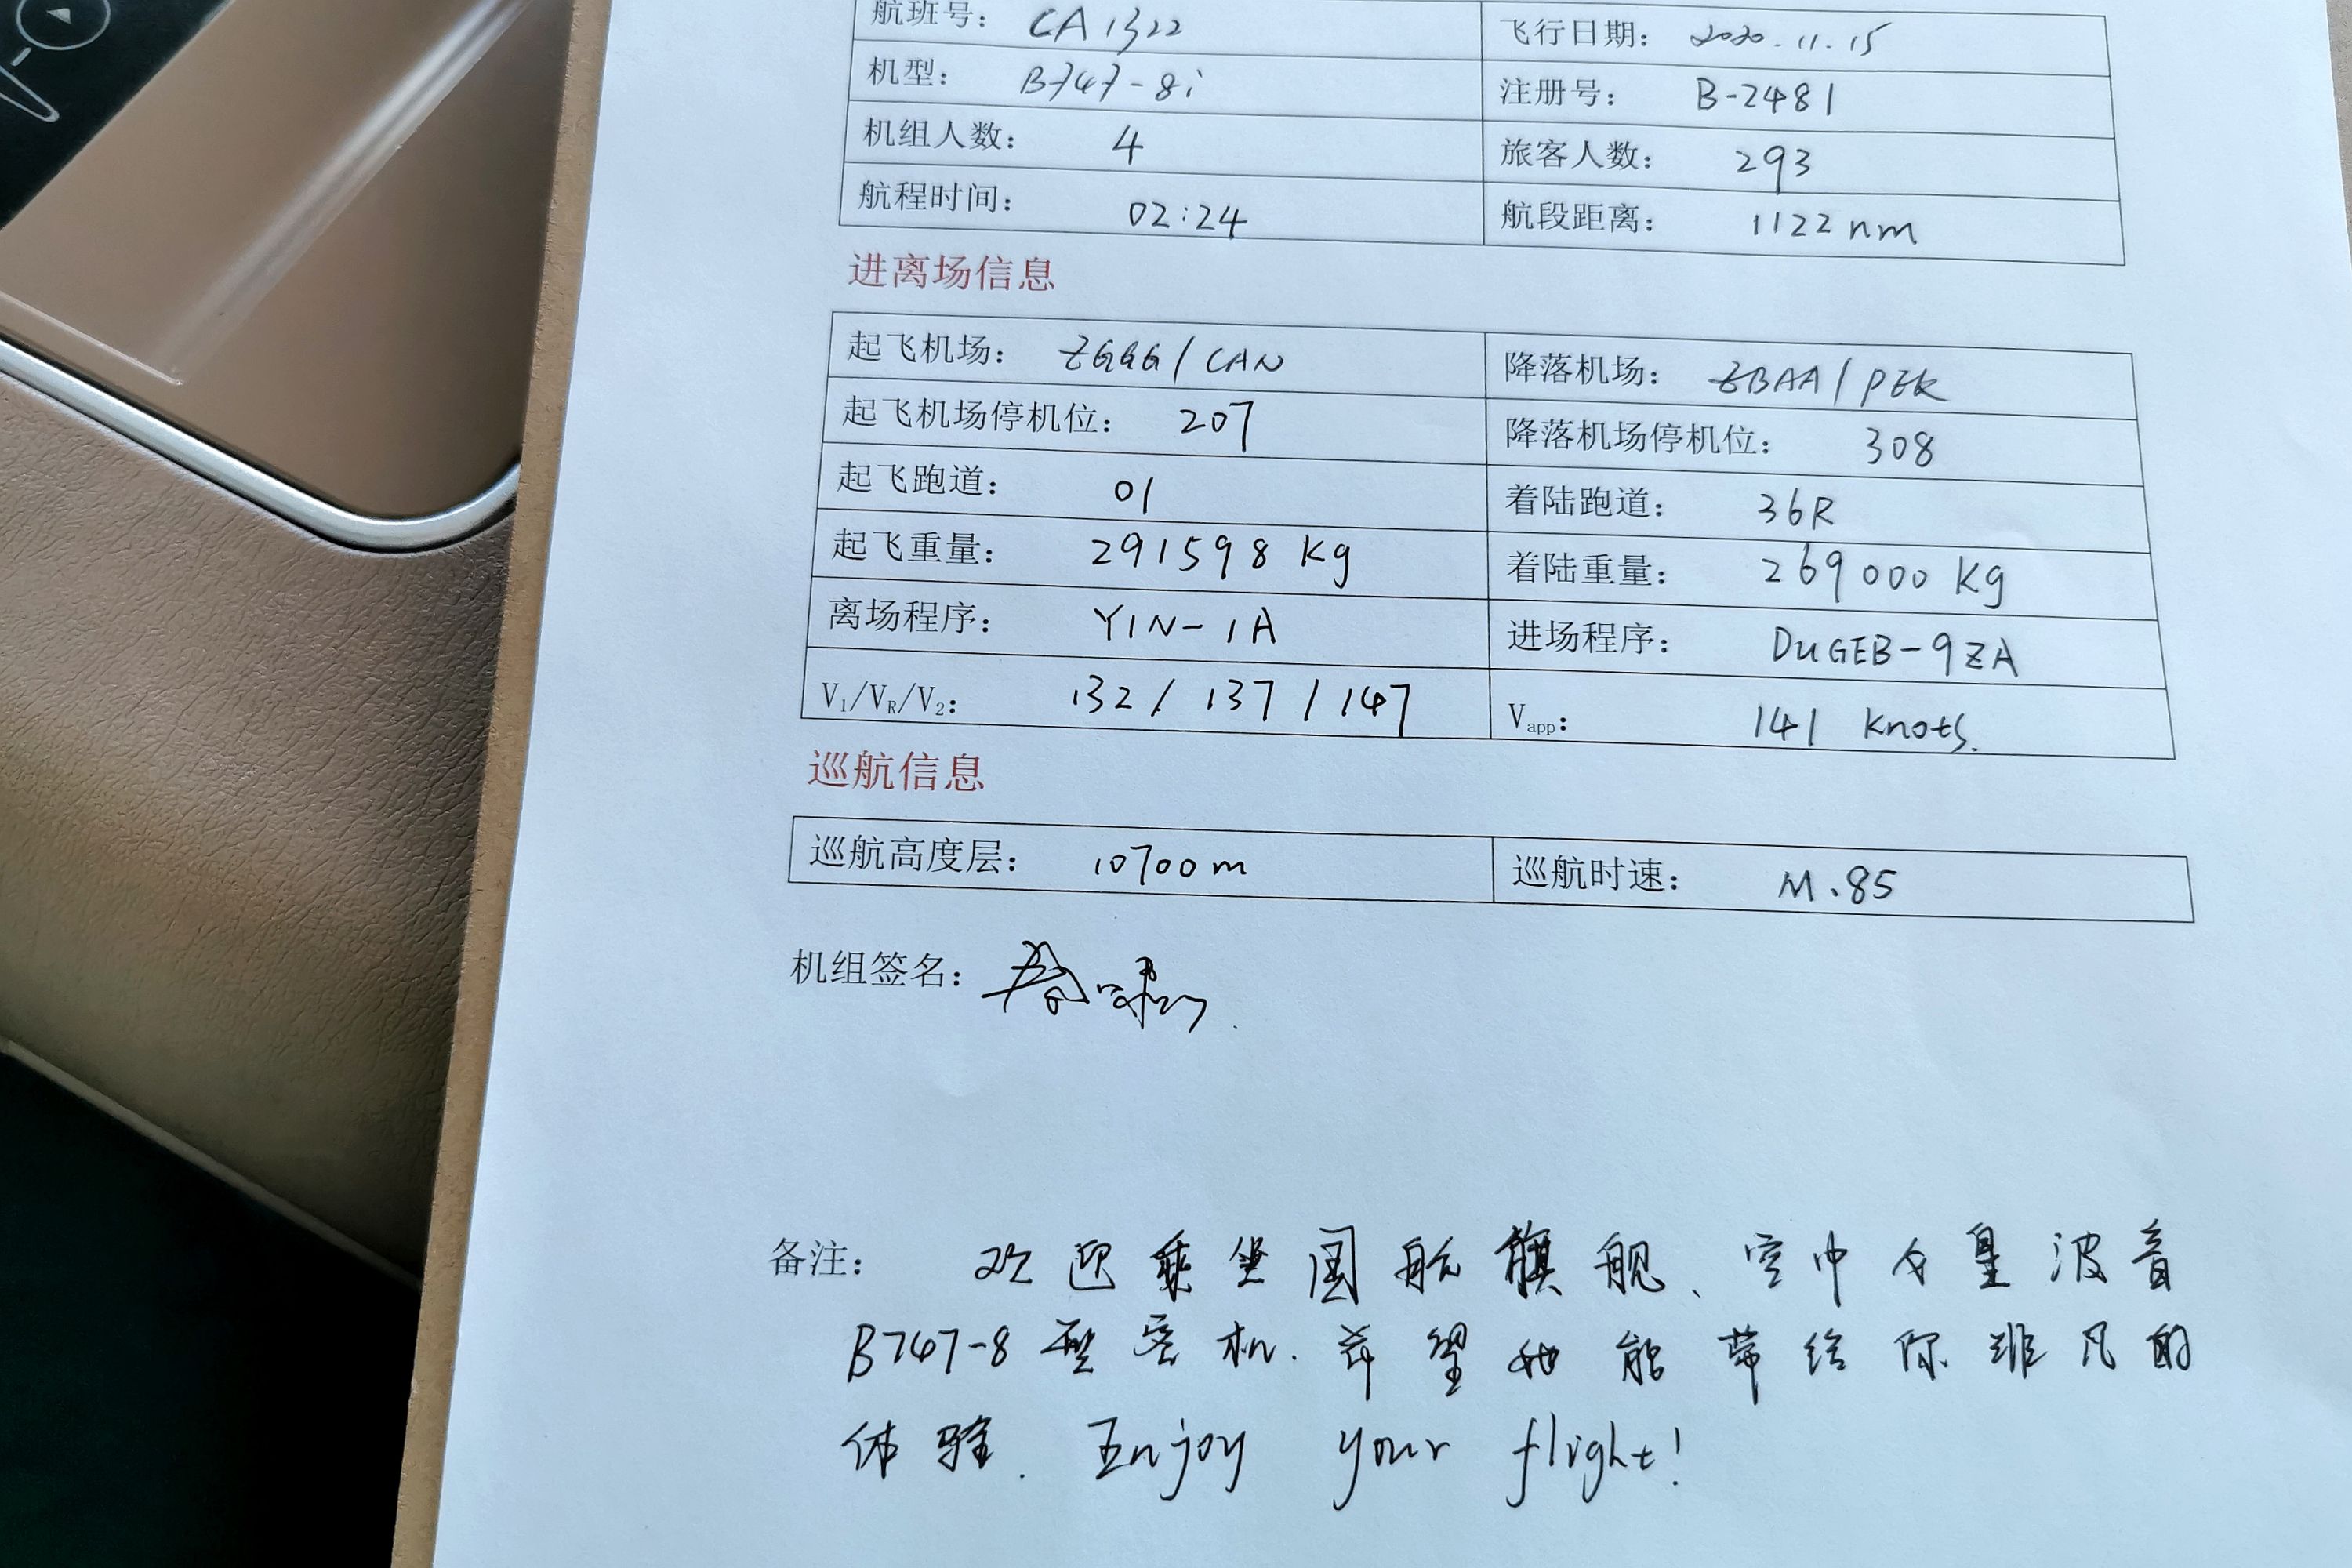 航班号： CA1322 飞行日期： 2020.11.15
机型： B747-8i 注册号： B-2481
机组人数： 4 旅客人数： 293
航程时间： 02:24 航段距离： 1122 nm
进离场信息
起飞机场： ZGGG/CAN 降落机场： ZBAA/PEK
起飞机场停机位： 207 降落机场停机位： 308
起飞跑道： 01 着陆跑道： 36R
起飞重量： 291598 Kg 着陆重量： 269000 Kg
离场程序： YIN-1A 进场程序： DUGEB-9ZA
V1/VR/V2： 132 / 137 / 147 Vapp： 141 Knots.
巡航信息
巡航高度层： 10700m 巡航时速： M.85
机组签名：
备注： 欢迎乘坐国航旗舰、空中女皇波音
B747-8型客机. 希望她能带给你非凡的
体验. Enjoy your flight!